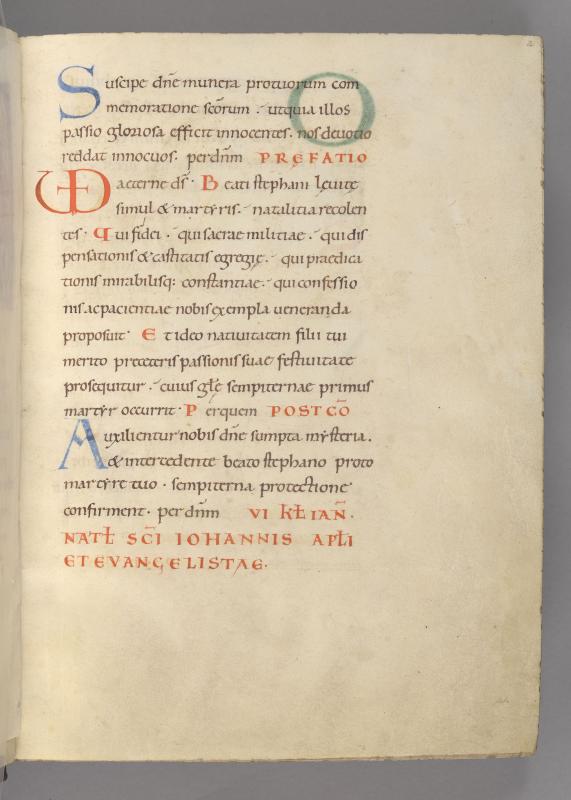 Suscipe dn̄e munera protuorum com
memoratione sc̄orum. utquia illos
passio gloriosa efficit innocentes. nos deuotio
reddat innocuos. perdn̄m PREFATIO
VD aeterne ds̄. Beati stephani leuitę
simul & martyris. natalitia recolen
tes. Qui fidei. qui sacrae militiae. qui dis
pensationis & castitatis egregię. qui praedica
tionis mirabilisq: constantiae. qui confessio
nis ac pacientiae nobis exempla ueneranda
proposuit. Et ideo natiuitatem filii tui
merito pręceteris passionis suae festiuitate
prosequitur. cuius glę̄ sempiternae primus
martyr occurrit. Perquem POST CŌ
Auxilientur nobis dn̄e sumpta mysteria.
& intercedente beato stephano proto
martyre tuo. sempiterna protectione
confirment. perdn̄m VI KƗ IAN̄.
NATƗ SC̄I IOHANNIS APƗI
ET EVANGELISTAE.